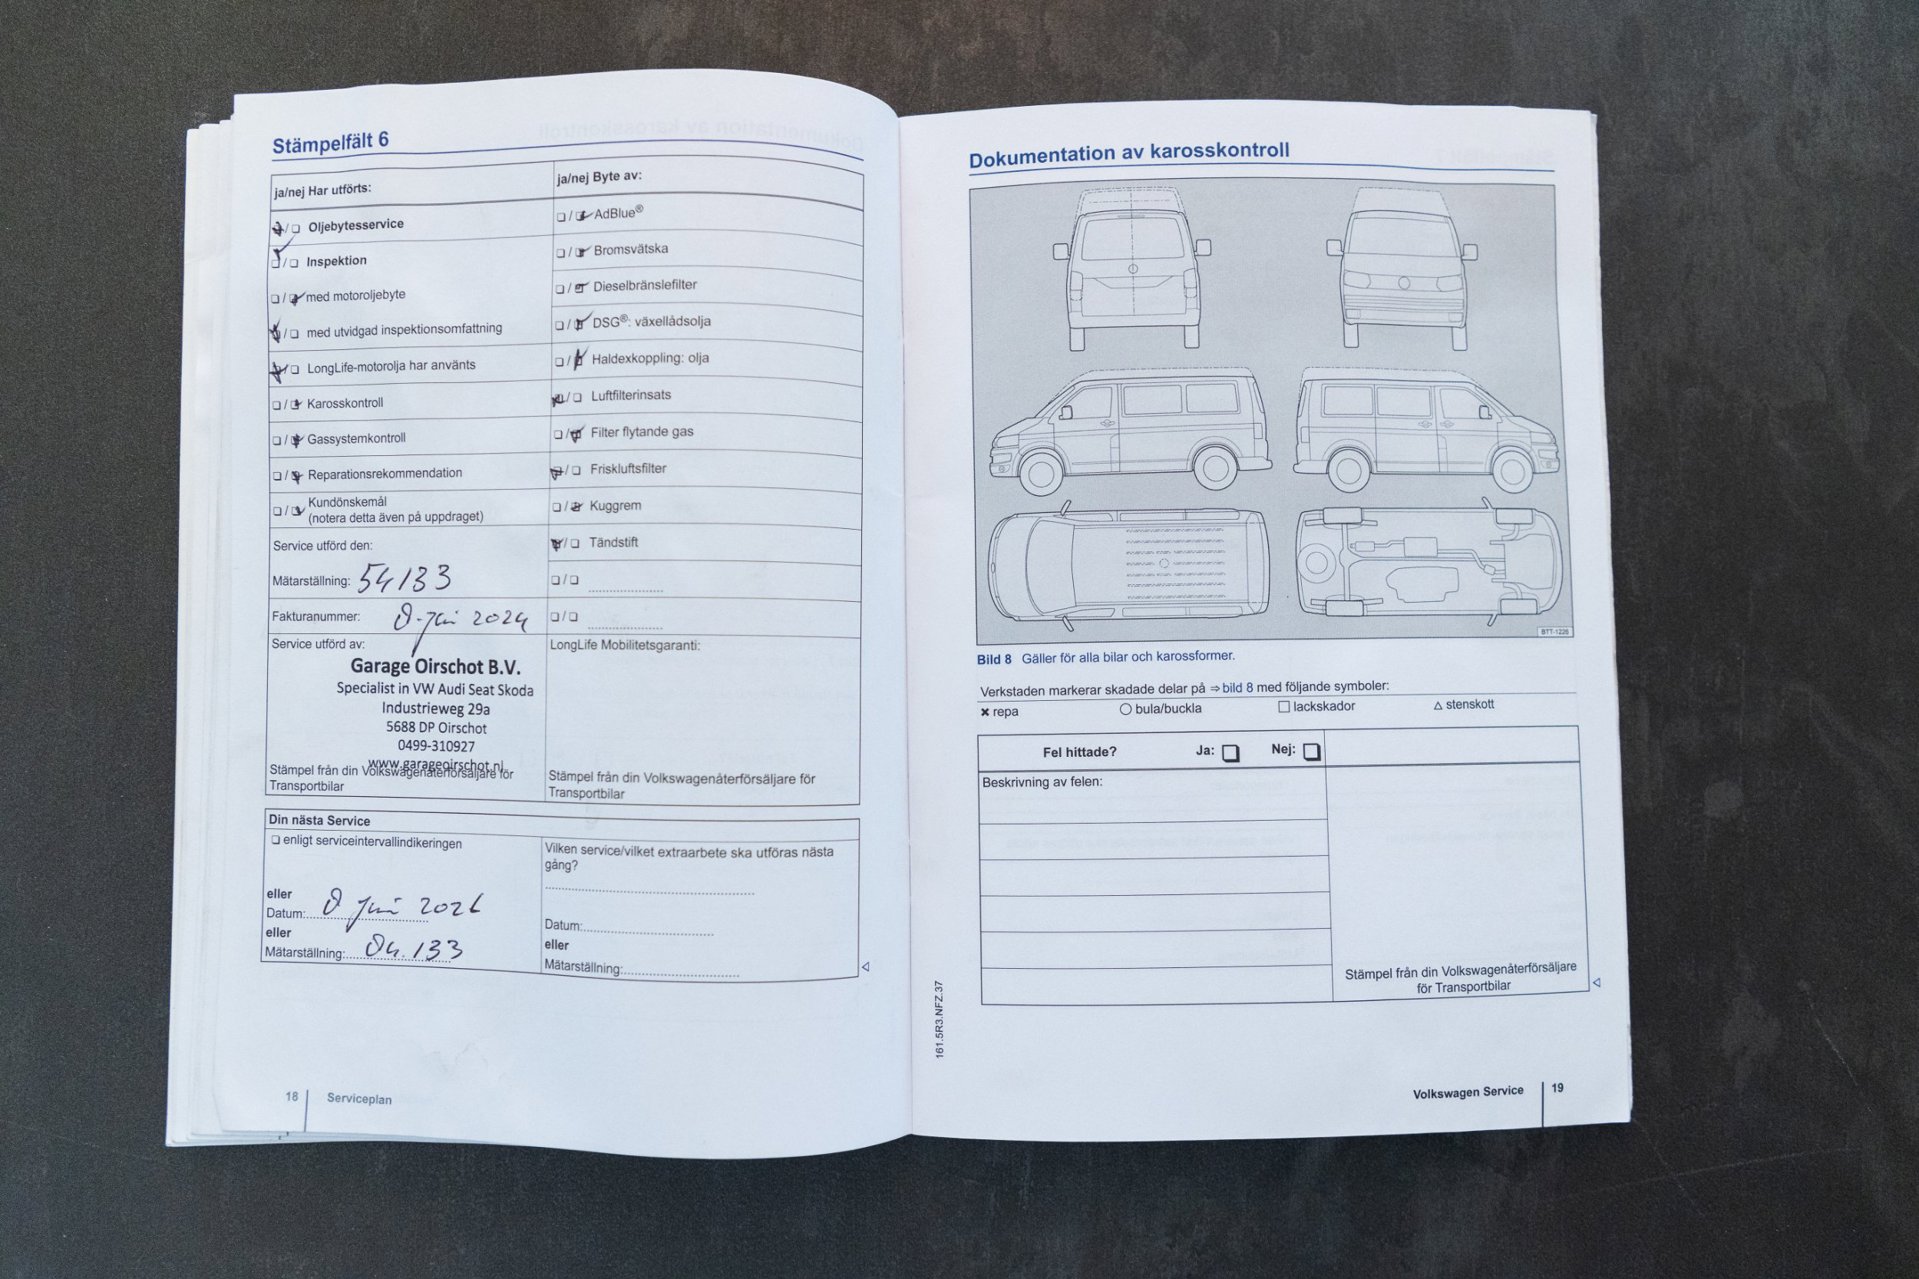 Stämpelfält 6
ja/nej Har utförts:
Oljebytesservice
Inspektion
med motoroljebyte
med utvidgad inspektionsomfattning
LongLife-motorolja har använts
Karosskontroll
Gassystemkontroll
Reparationsrekommendation
Kundönskemål
(notera detta även på uppdraget)
Service utförd den:
Mätarställning: 54133
Fakturanummer: 8-Juni 2024
Service utförd av:
Garage Oirschot B.V.
Specialist in VW Audi Seat Skoda
Industrieweg 29a
5688 DP Oirschot
0499-310927
www.garageoirschot.nl
Stämpel från din Volkswagenåterförsäljare för
Transportbilar
ja/nej Byte av:
AdBlue®
Bromsvätska
Dieselbränslefilter
DSG®: växellådsolja
Haldexkoppling: olja
Luftfilterinsats
Filter flytande gas
Friskluftsfilter
Kuggrem
Tändstift
LongLife Mobilitetsgaranti:
Stämpel från din Volkswagenåterförsäljare för
Transportbilar
Din nästa Service
enligt serviceintervallindikeringen
eller
Datum: 8 Juni 2026
eller
Mätarställning: 84.133
Vilken service/vilket extraarbete ska utföras nästa
gång?
Datum:
eller
Mätarställning:
18 Serviceplan
Dokumentation av karosskontroll
BTT-1226
Bild 8 Gäller för alla bilar och karossformer.
Verkstaden markerar skadade delar på ⇒ bild 8 med följande symboler:
✖ repa ○ bula/buckla □ lackskador △ stenskott
Fel hittade? Ja: Nej:
Beskrivning av felen:
Stämpel från din Volkswagenåterförsäljare
för Transportbilar
161.5R3.NFZ.37
Volkswagen Service 19